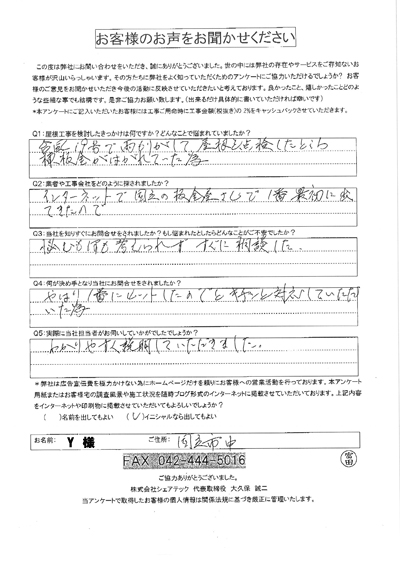 お客様のお声をお聞かせください
この度は弊社にお問い合わせをいただき、誠にありがとうございました。世の中には弊社の存在やサービスをご存知ないお
客様が沢山いらっしゃいます。その方たちに弊社をよく知っていただくためのアンケートにご協力いただけるでしょうか? お客
様のご意見をお聞かせいただき今後の活動に反映させていただきたいと考えております。良かったこと、嬉しかったことどのよ
うな些細な事でも結構です、是非ご協力お願い致します。(出来るだけ具体的に書いていただければ幸いです)
*アンケートにご記入いただいたお客様には工事ご用命時に工事金額(税抜き)の2%をキャッシュバックさせていただきます。
Q1:屋根工事を検討したきっかけは何ですか?どんなことで悩まれていましたか?
台風19号で雨もりがして屋根を点検したところ
棟板金がはがれていた為
Q2:業者や工事会社をどのように探されましたか?
インターネットで国立の板金屋さんで1番最初に出
てきたので
Q3:当社を知りすぐにお問合せをされましたか?もし悩まれたとしたらどんなことがご不安でしたか?
悩むも何も考えられず すぐに相談した.
Q4:何が決め手となり当社にお問合せをされましたか?
やはり1番にヒットしたのでとキチンと対応していただ
いた為
Q5:実際に当社担当者がお伺いしていかがでしたでしょうか?
わかりやすく説明していただきました.
*弊社は広告宣伝費を極力かけない為にホームページだけを頼りにお客様への営業活動を行っております。本アンケート
用紙またはお客様宅の調査風景や施工状況を随時ブログ形式のインターネットに掲載させていただいております。上記内容
をインターネットや印刷物に掲載させていただいてもよろしいでしょうか?
( )名前を出してもよい (✓)イニシャルなら出してもよい
お名前: Y 様 ご住所: 国立市中
FAX 042-444-5016
ご協力ありがとうございました。
株式会社シェアテック 代表取締役 大久保 誠二
当アンケートで取得したお客様の個人情報は関係法規に基づき厳正に管理いたします。